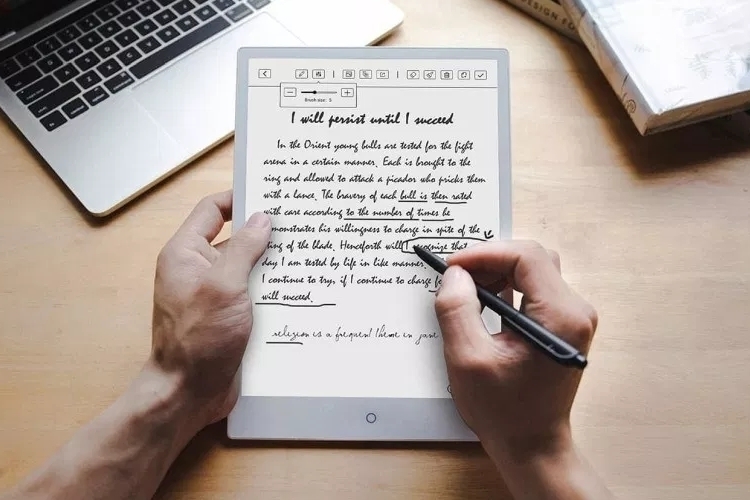 Brush size: 5
I will persist until I succeed
In the Orient young bulls are tested for the fight
arena in a certain manner. Each is brought to the
ring and allowed to attack a picador who pricks them
with a lance. The bravery of each bull is then rated
with care according to the number of times he
monstrates his willingness to charge in spite of the
ting of the blade. Henceforth will I recognize that
day I am tested by life in like manner.
I continue to try, if I continue to charge
will succeed.
religion is a frequent theme in
DESIGN FO